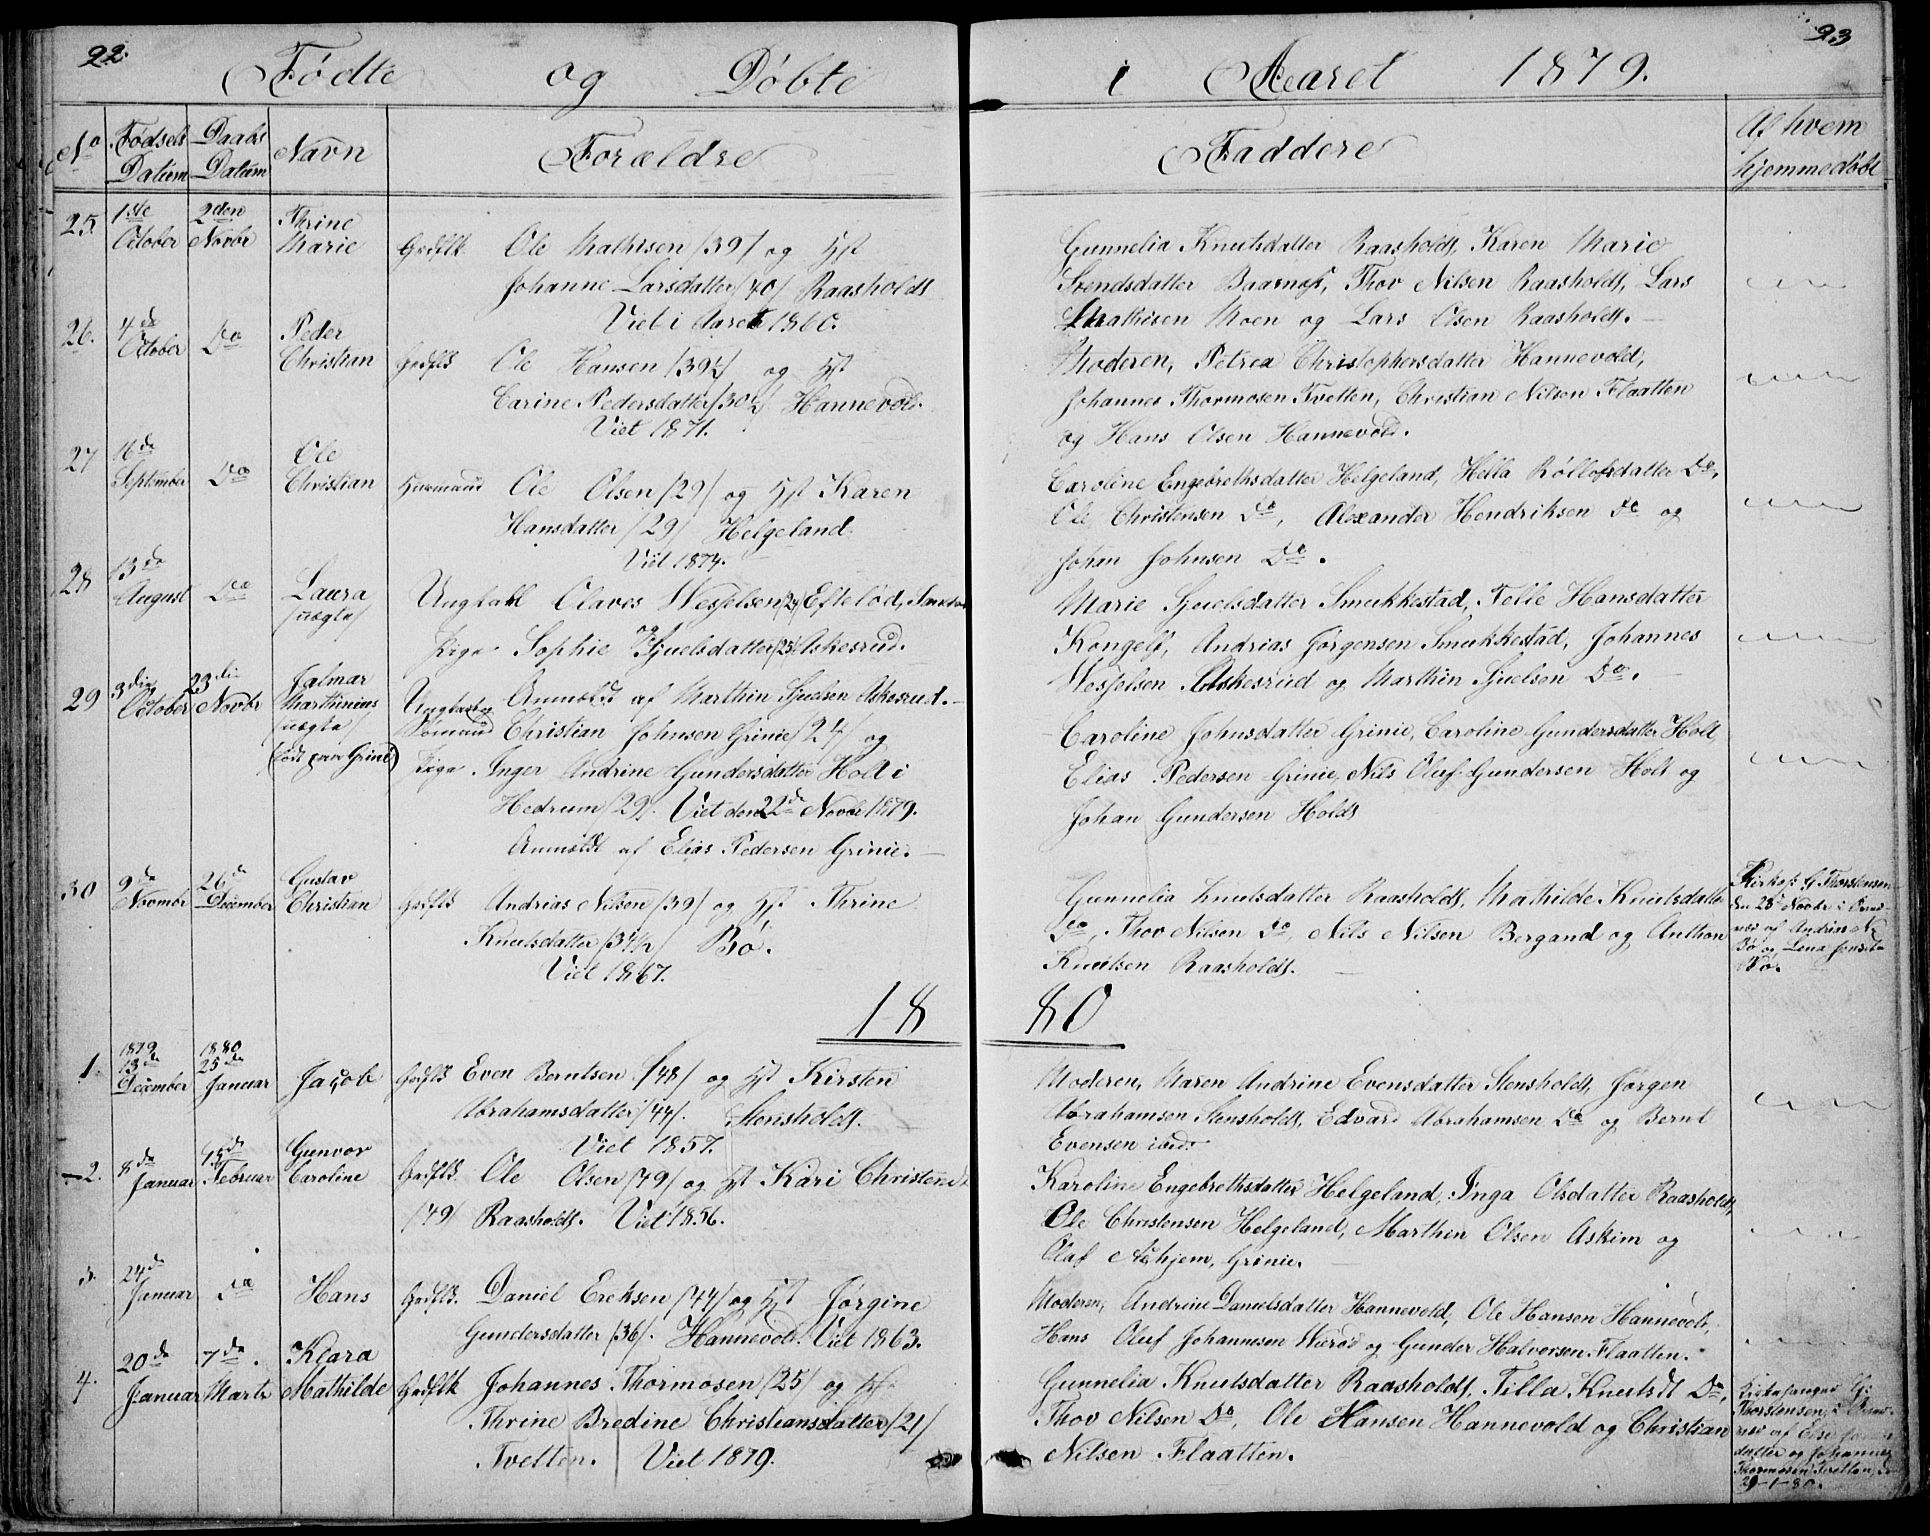 22.
Fødte og Døbte
No
Fødsels Datum
Daabs Datum
Navn
Forældre
25. 1ste October 2den Novbr Thrine Marie Grdflk. Ole Mathisen /39/ og Hst
Johanne Larsdatter /40/ Raasholdt
Viet i Aaret 1860.
26. 4de October Do Peder Christian Grdflk Ole Hansen /39½/ og Hst
Carine Pedersdatter /30½/ Hannevold.
Viet 1871.
27 16de September Do Ole Christian Huusmand Ole Olsen /29/ og Hst Karen
Hansdatter /29/ Helgeland.
Viet 1874.
28 13de August Do Laura /uægte/ Ungkarl Olaves Wesselsen Eftelød,
Pige Sophie Sjuelsdatter /25/ Askesrud.
Anmeldt af Marthin Sjuelsen Askesrud.
29 3die October 23die Novbr Jalmar Marthinius /uægte/ Ungkarl og Sømand
Christian Johnsen Grinie /24/ og
Pige. Inger Andrine Gundersdatter Holt i
Hedrum /29/. Viet den 22de Novbr 1879.
Anmeldt af Elias Pedersen Grinie.
30 9de Novmbr 26de December Gustav Christian Grdflk Andrias Nilsen /39/ og Hst Thrine
Knutsdatter /34½/ Bø.
Viet 1867.
18
1. 1879 13de December 1880 25de Januar Jacob Grdflk Even Berntsen /48/ og Hst Kirsten
Abrahamsdatter /44/. Stensholdt.
Viet 1857.
2. 8de Januar 15de Februar Gunvor Caroline Grdflk. Ole Olsen /49/ og Hst Kari Christensd.
/49/ Raasholdt. Viet 1856.
3. 24de Januar Do Hans Grdflk. Daniel Ereksen /44/ og Hst Jørgine
Gundersdatter /36/. Hannevold. Viet 1863.
4. 20de Januar 7de Marts Klara Mathilde Grdflk Johannes Thormosen /25/ og Hst.
Thrine Bredine Christiansdatter /21/
Tvetten. Viet 1879.
23
i Aaret 1879.
Faddere
Af hvem hjemmedøbt
Gunnelia Knutsdatter Raasholdt, Karen Marie
Svendsdatter Baarnes, Thov Nilsen Raasholdt, Lars
Mathisen Moen og Lars Olsen Raasholdt.
Moderen, Petrea Christophersdatter Hannevold,
Johannes Thormosen Tvetten, Christian Nilsen Flaatten
og Hans Olsen Hannevold.
Caroline Engebrethsdatter Helgeland, Hella Røllofsdatter Do,
Ole Christensen Do, Alexander Hendriksen Do og
Johan Johnsen Do.
Marie Sjuelsdatter Smukkestad, Telle Hansdatter
Kongelf, Andrias Jørgensen Smukkestad, Johannes
Wesselsen Askesrud og Marthin Sjuelsen Do.
Caroline Johnsdatter Grinie, Caroline Gundersdatter Holt,
Elias Pedersen Grinie, Nils Oluf Gundersen Holt og
Johan Gundersen Holdt
Gunnelia Knutsdatter Raasholdt, Mathilde Knutsdatter
Do, Thov Nilsen Do, Nils Nilsen Bergand og Anthon
Knutsen Raasholdt.
Kirkes. G. Thorstensen
den 23de Novbr i
af Andrias N.
Bø og Lena
Bø.
80
Moderen, Maren Andrine Evensdatter Stensholdt, Jørgen
Abrahamsen Stensholdt, Edvard Abrahamsen Do og Bernt
Evensen ibid.
Karoline Engebrethsdatter Helgeland, Inga Olsdatter Raasholdt,
Ole Christensen Helgeland, Marthin Olsen Askim og
Olaf Askjem, Grinie.
Moderen, Andrine Danielsdatter Hannevold, Ole Hansen Hannevold,
Hans Oluf Johannesen Wærød og Gunder Halvorsen Flaatten.
Gunnelia Knutsdatter Raasholdt, Tilla Knutsdt Do,
Thov Nilsen Do, Ole Hansen Hannevold og Christian
Nilsen Flaatten.
Kirkesanger G.
Thorstensen, i
af Else
datter og Johannes
Thormosen Tvetten, d.
29-1-80.